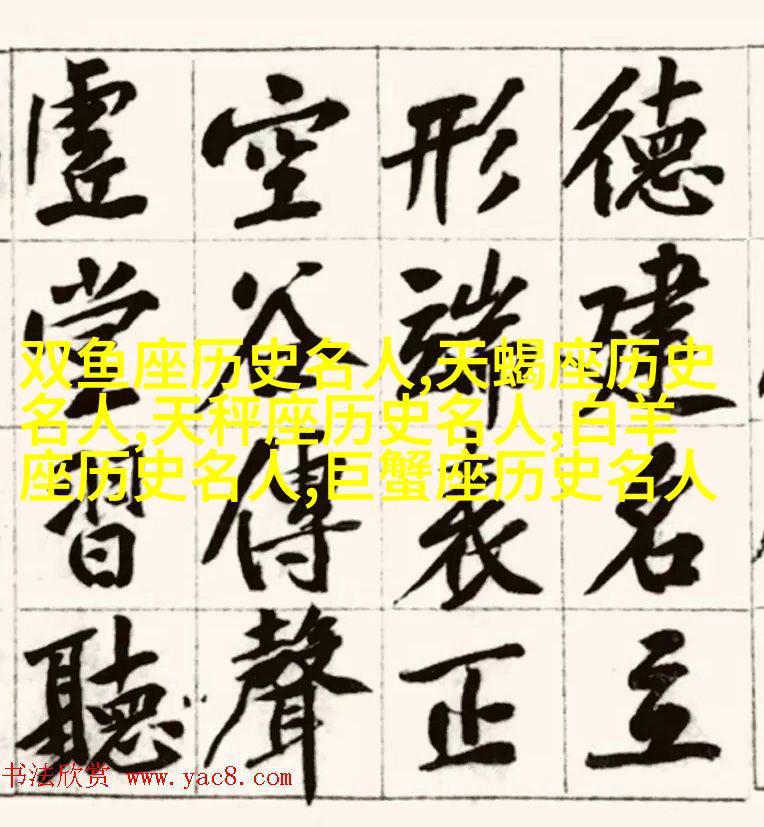 德建名立
形端表正
空谷傳聲
虛堂習聽
双鱼座历史名人,天蝎座历史
名人,天秤座历史名人,白羊
座历史名人,巨蟹座历史名人
书法欣赏 www.yac8.com